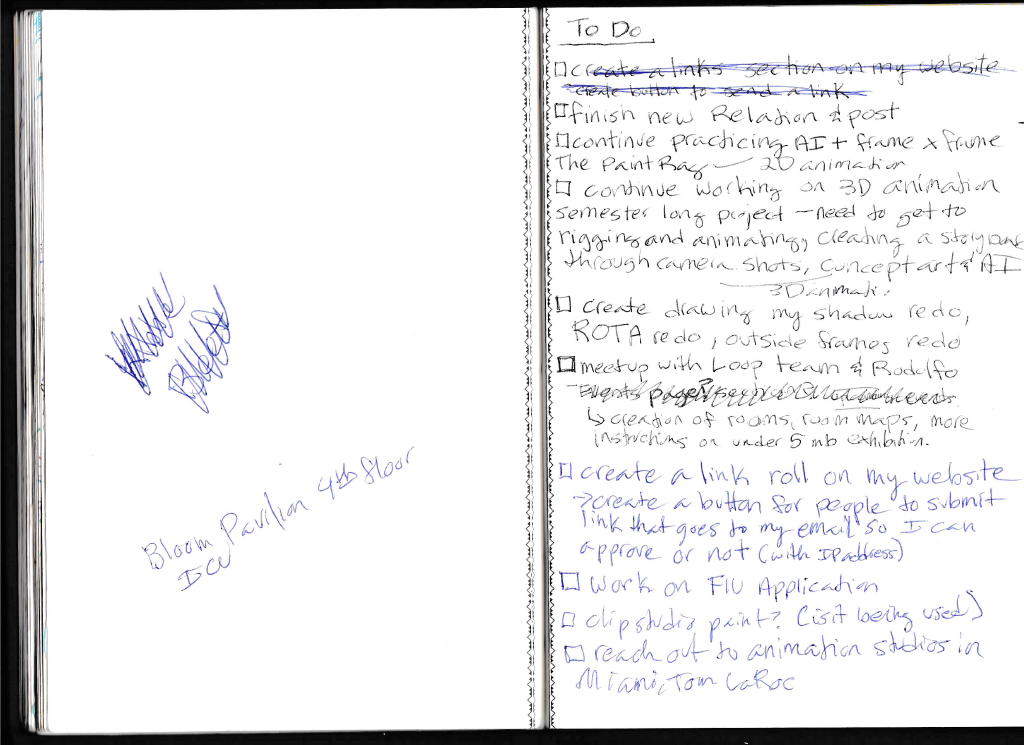 Bloom Pavilion 4th floor
ICU
To Do
create a links section on my website
create button to send a link
finish new Relation & post
continue practicing AI + frame x frame
The Paint Bag — 2D animation
continue working on 3D animation
semester long project — need to get to
rigging and animating, creating a storyboard
through camera shots, concept art & AI
3D animati.
create drawing my shadow redo,
ROTA redo, outside frames redo
meetup with Loop team & Rodolfo
- Events page?
↳ creation of rooms, room maps, more
instructions on under 5 mb exhibition.
create a link roll on my website
→ create a button for people to submit
link that goes to my email so I can
approve or not (with IP address)
Work on FIU Application
clip studio paint? (is it being used)
reach out to animation studios in
Miami, Tom LaRoc